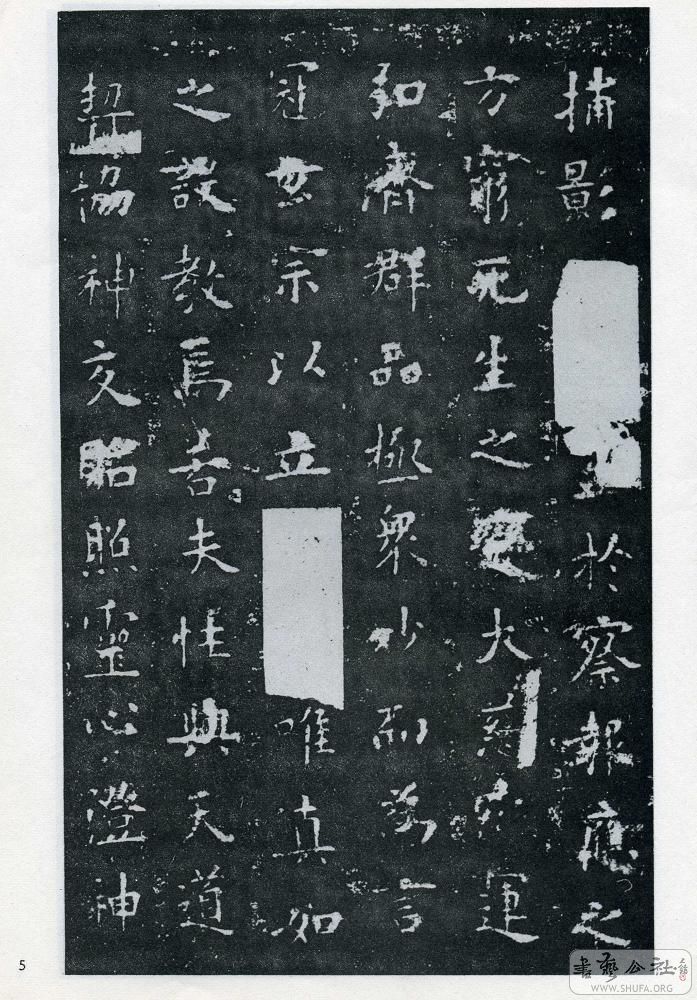 捕影於察報應之
方窮死生之變大慈運
弘濟群品極衆妙而為言
冠玄宗以立唯真如
之設教焉若夫性與天道
契協神交昭照靈心澄神
5
書藝公社
WWW.SHUFA.ORG